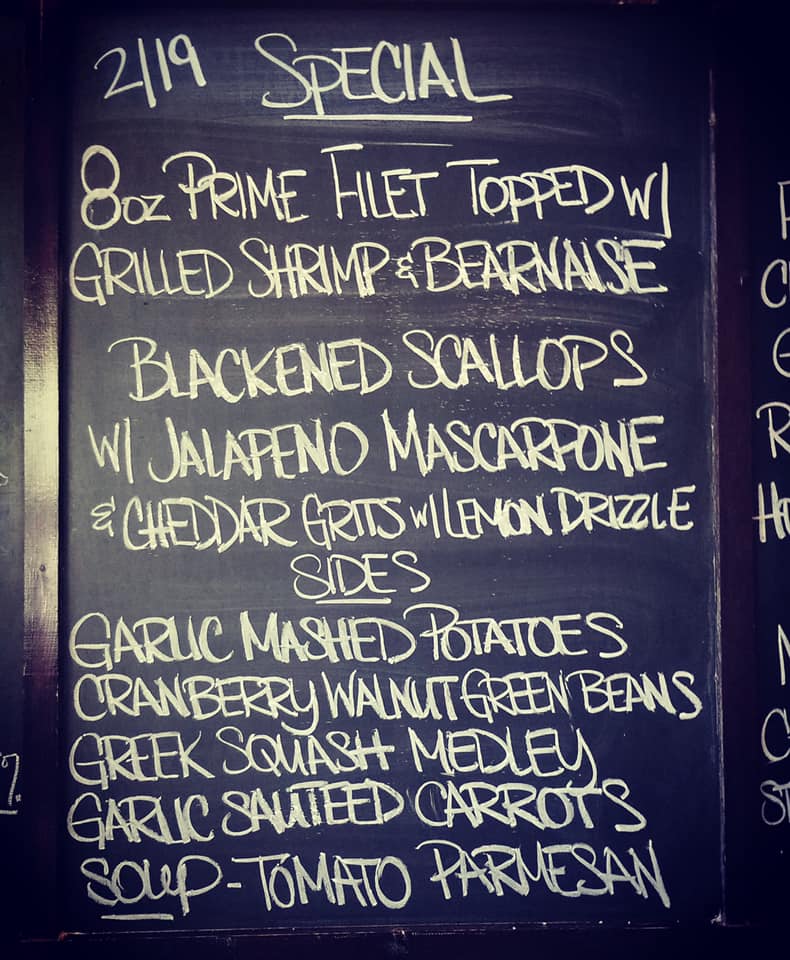 2/19 SPECIAL
8oz PRIME FILET TOPPED W/
GRILLED SHRIMP & BEARNAISE
BLACKENED SCALLOPS
W/ JALAPENO MASCARPONE
& CHEDDAR GRITS W/ LEMON DRIZZLE
SIDES
GARLIC MASHED POTATOES
CRANBERRY WALNUT GREEN BEANS
GREEK SQUASH MEDLEY
GARLIC SAUTEED CARROTS
SOUP - TOMATO PARMESAN